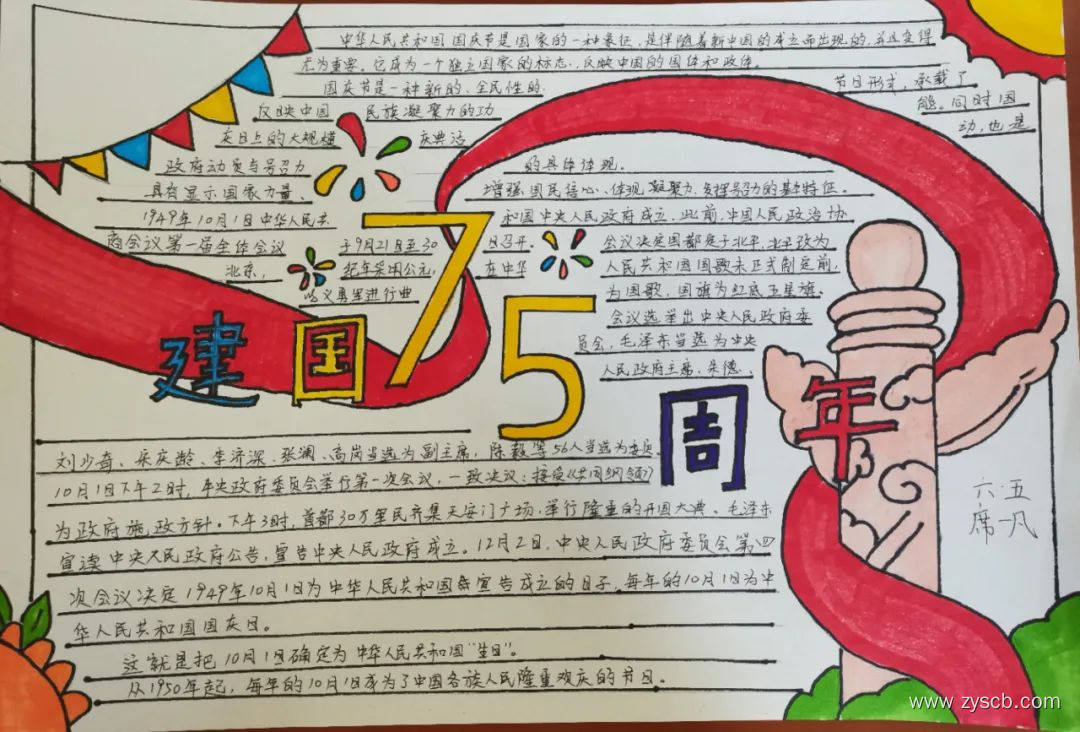 中华人民共和国国庆节是国家的一种象征，是伴随着新中国的成立而出现的，并且变得
尤为重要。它成为一个独立国家的标志，反映中国的国体和政体。
国庆节是一种新的、全民性的 节日形式，承载了
反映中国 民族凝聚力的功 能。同时国
庆日上的大规模 庆典活 动，也是
政府动员与号召力 的具体体现。
具有显示国家力量、 增强国民信心、体现凝聚力、发挥号召力的基本特征。
1949年10月1日中华人民共 和国中央人民政府成立，此前，中国人民政治协
商会议第一届全体会议 于9月21日至30 日召开。 会议决定国都定于北平，北平改为
北京， 纪年采用公元， 在中华 人民共和国国歌未正式制定前，
以义勇军进行曲 为国歌，国旗为红底五星旗。
会议选举出中央人民政府委
员会，毛泽东当选为中央
人民政府主席、朱德、
建国75周年
刘少奇、宋庆龄、李济深、张澜、高岗当选为副主席，陈毅等56人当选为委员
10月1日下午2时，中央政府委员会举行第一次会议，一致决议：接受《共同纲领》
为政府施政方针。下午3时，首都30万军民齐集天安门广场，举行隆重的开国大典。毛泽东
宣读中央人民政府公告，宣告中央人民政府成立。12月2日，中央人民政府委员会第四
次会议决定1949年10月1日为中华人民共和国宣告成立的日子，每年的10月1日为中
华人民共和国国庆日。
这就是把10月1日确定为中华人民共和国“生日”。
从1950年起，每年的10月1日成为了中国各族人民隆重欢庆的节日。
六·五
席一凡
www.zyscb.com